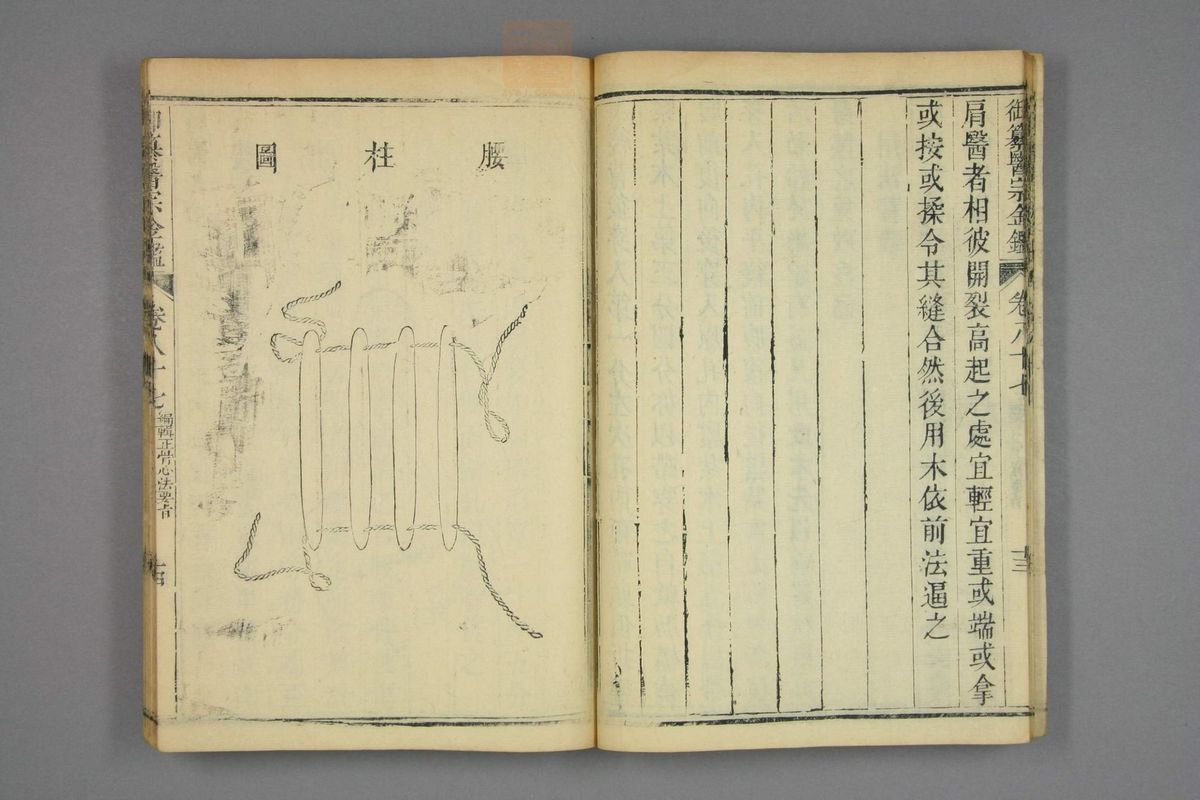 御纂醫宗金鑑 卷八十七 十三
肩醫者相彼開裂高起之處宜輕宜重或端或拿
或按或揉令其縫合然後用木依前法逼之
腰柱圖
御纂醫宗金鑑 卷八十七 編輯正骨心法要旨 十四